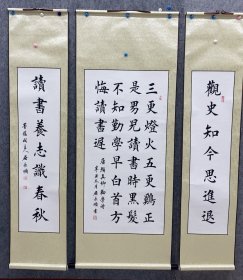 觀史知今思進退
三更燈火五更鷄正
是男兒讀書時黑髮
不知勤學早白首方
悔讀書遲
唐顏真卿勸學詩
讀書養志識春秋